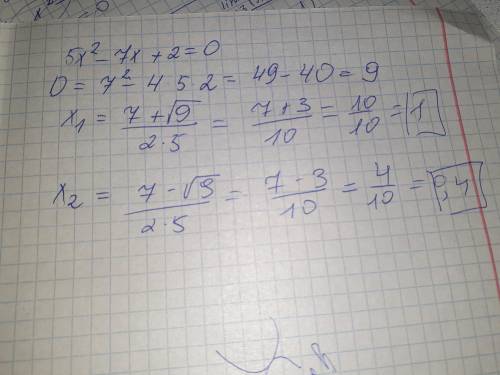 5x² - 7x + 2 = 0
D = 7² - 4 5 2 = 49 - 40 = 9
x₁ = (7 + √9)/(2·5) = (7 + 3)/10 = 10/10 = 1
x₂ = (7 - √9)/(2·5) = (7 - 3)/10 = 4/10 = 0,4